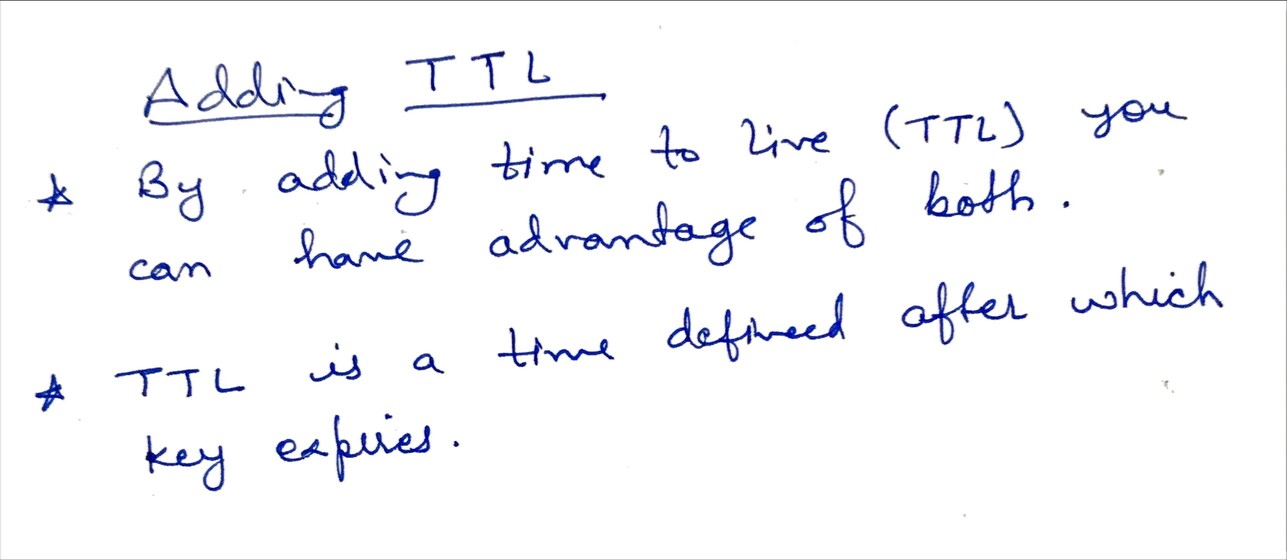 Adding TTL
* By adding time to live (TTL) you
can have advantage of both.
* TTL is a time defined after which
key expires.